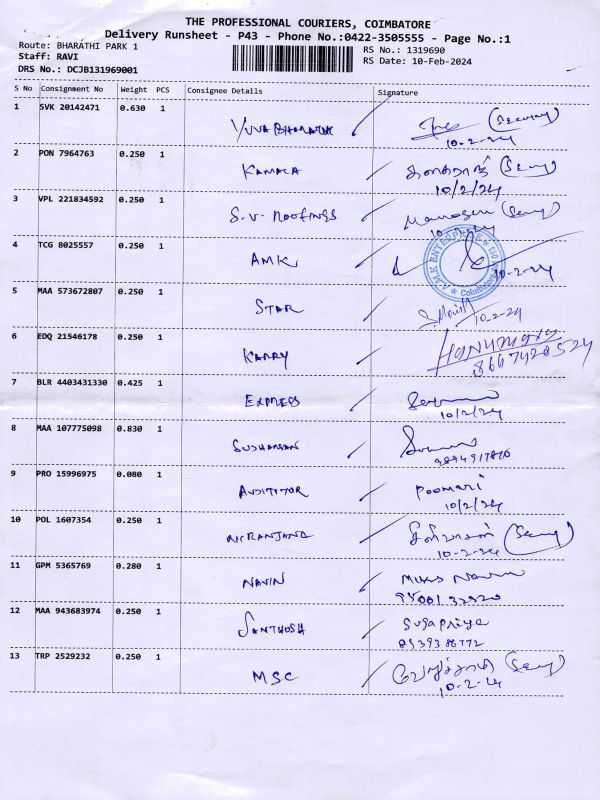 THE PROFESSIONAL COURIERS, COIMBATORE
Delivery Runsheet - P43 - Phone No.:0422-3505555 - Page No.:1
Route: BHARATHI PARK 1
RS No.: 1319690
Staff: RAVI
RS Date: 10-Feb-2024
DRS No.: DCJB131969001
S No Consignment No Weight PCS Consignee Details Signature
1 SVK 20142471 0.630 1 YUVA BHARATHI
10-2-24
2 PON 7964763 0.250 1 KAMALA
10/2/24
3 VPL 221834592 0.250 1 S.V. ROOFINGS
10-2-24
4 TCG 8025557 0.250 1 AMK
10-2-24
5 MAA 573672807 0.250 1 STAR
10-2-24
6 EDQ 21546178 0.250 1 KARRY
8667420524
7 BLR 4403431330 0.425 1 EXPRESS
10/2/24
8 MAA 107775098 0.830 1 SUDHARSAN
9 PRO 15996975 0.080 1 AUDITITOR Poomari
10/2/24
10 POL 1607354 0.250 1 NIRANJANA
10-2-24
11 GPM 5365769 0.280 1 NAVIN
12 MAA 943683974 0.250 1 SANTHOSH Sugapriya
8939386772
13 TRP 2529232 0.250 1 MSC
10-2-24